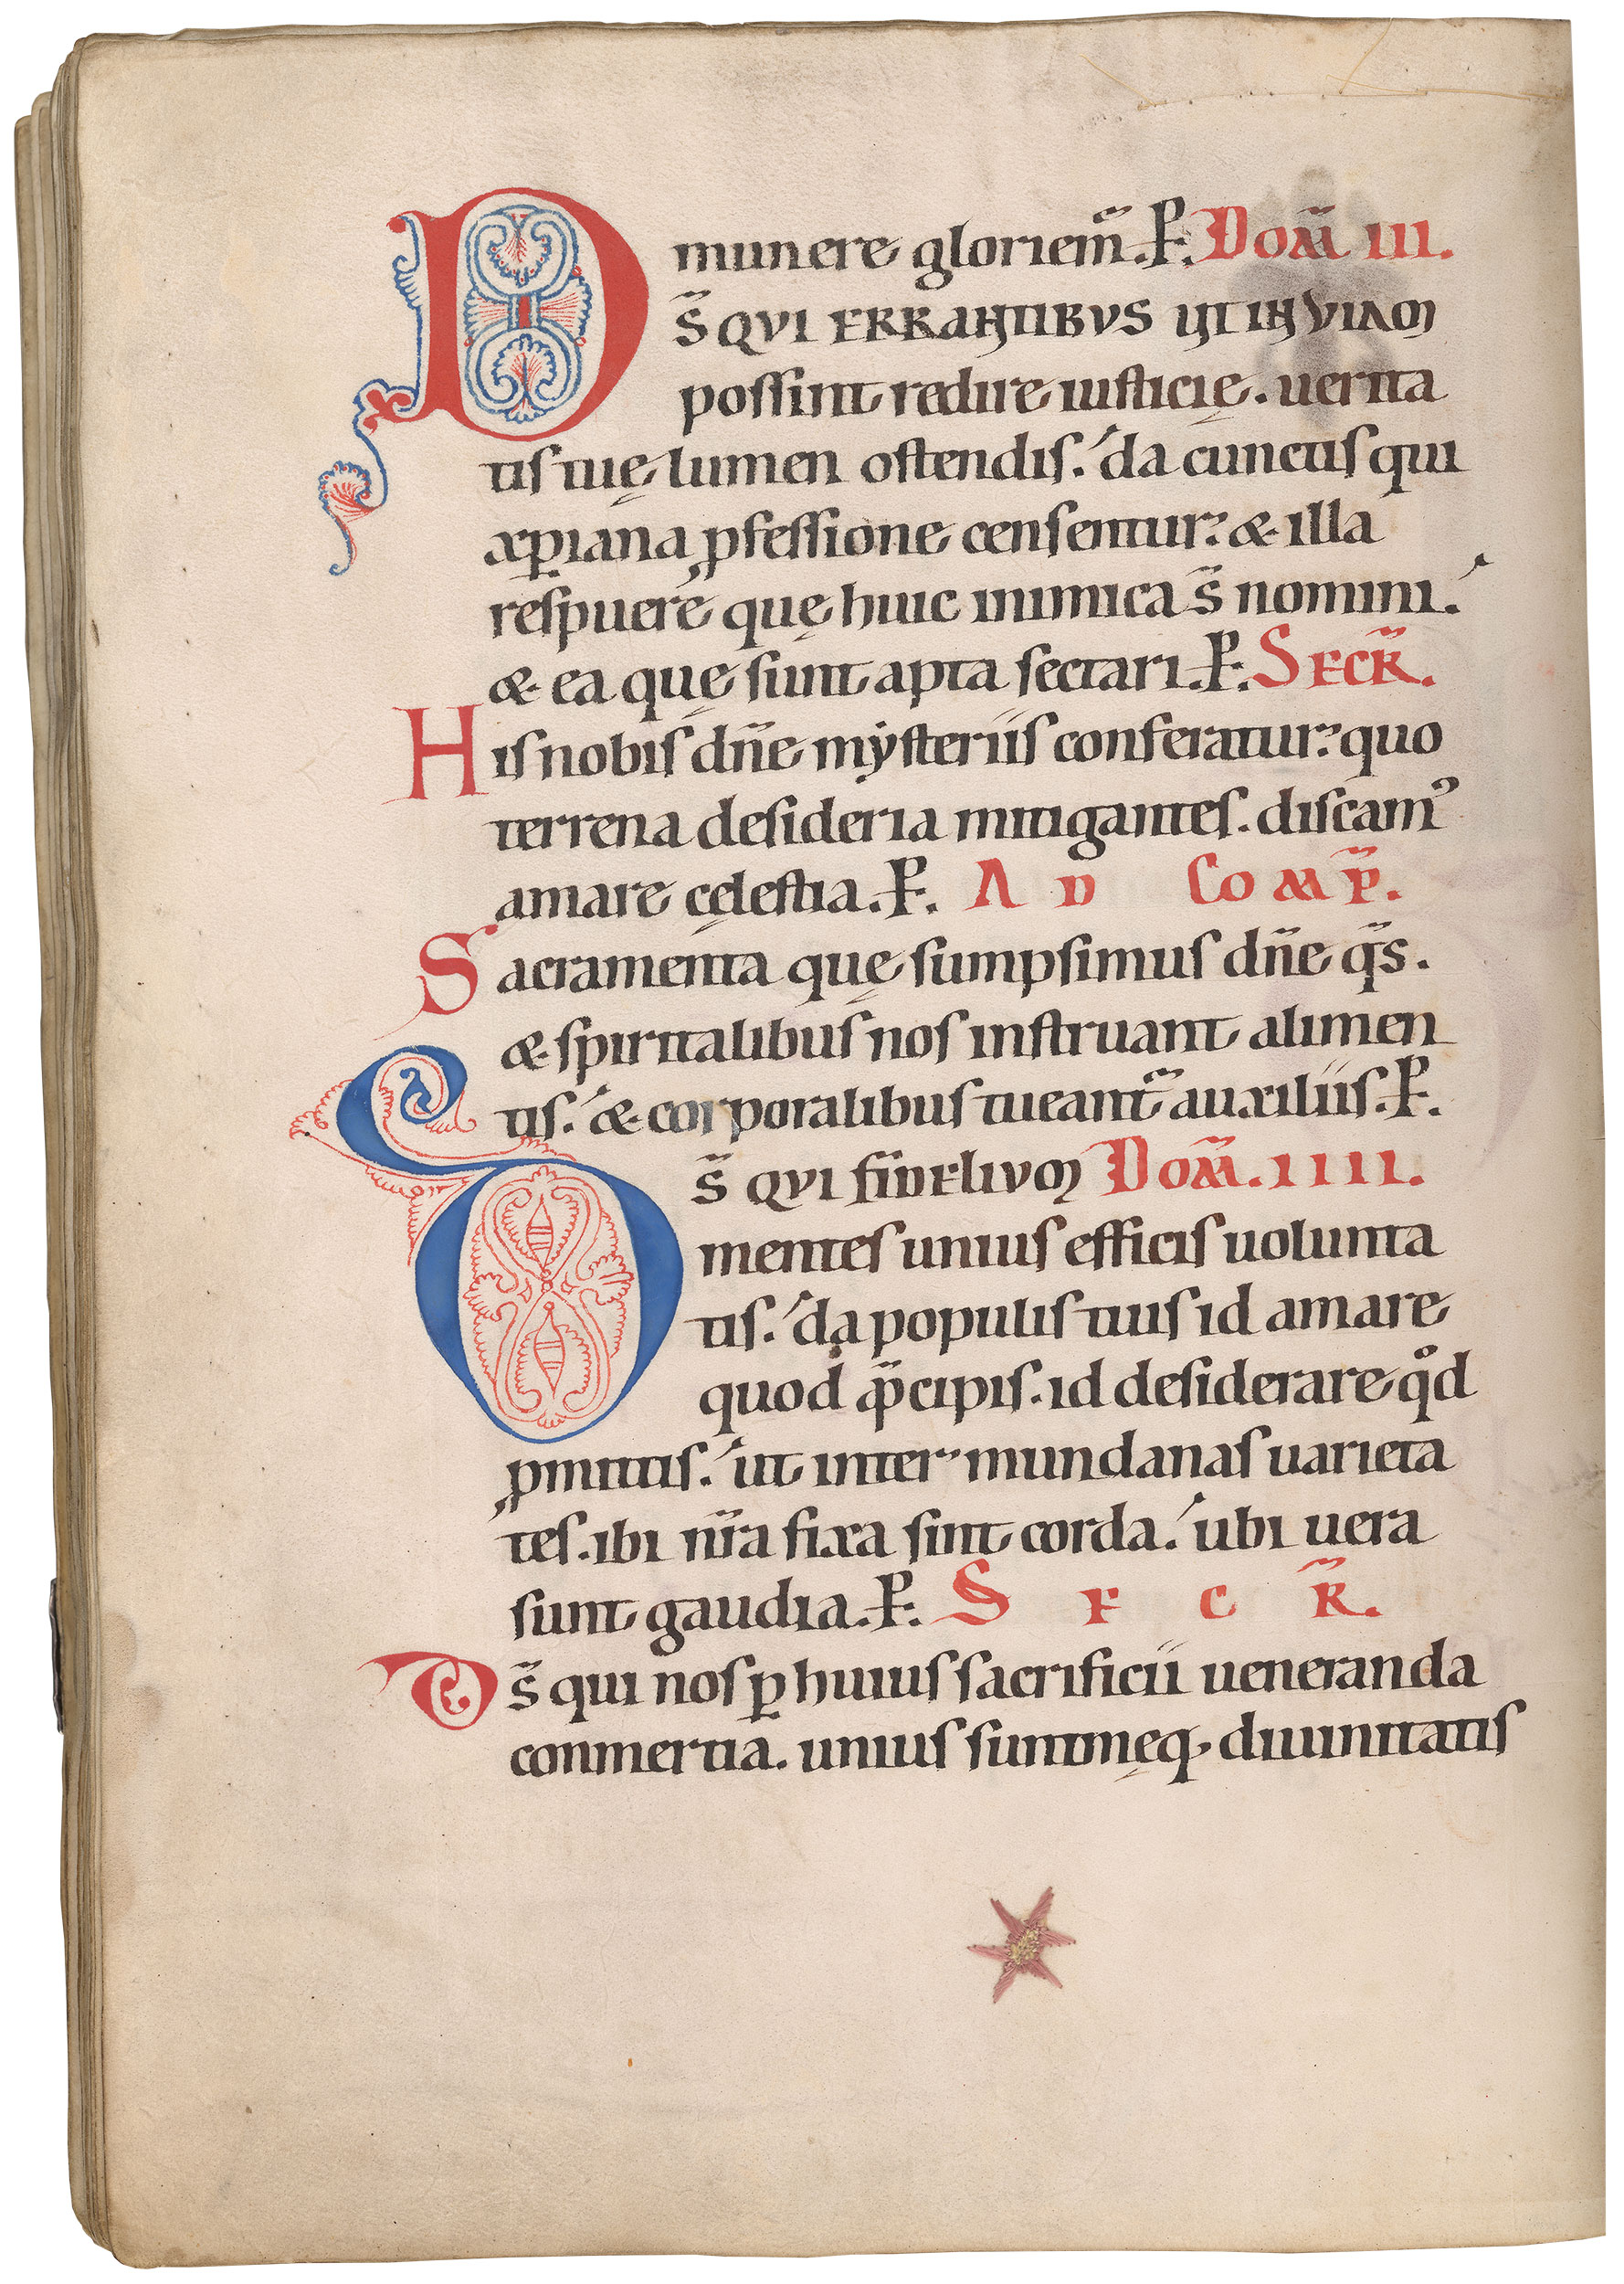 munere gloriem̃. P̵. Dom̃ III.
Ds̃ QVI ERRANTIBVS VT IN VIAM
possint redire iusticię. uerita
tis tuę lumen ostendis. da cunctis qui
xp̱iana ꝓfessione censentur: & illa
respuere quę huic inimica s̃ nomini.
& ea quę sunt apta sectari. P̵. SECR̃.
His nobis dñe mẏsteriis conferatur: quo
terrena desideria mitigantes. discamꝰ
amare cęlestia. P̵. AD COMP̃.
Sacramenta quę sumpsimus dñe q̃s.
& spiritalibus nos instruant alimen
tis. & corporalibus tueant᷑ auxiliis. P̵.
Ds̃ QVI fIDELIVM Dom̃. IIII.
mentes unius efficis uolunta
tis. da populis tuis id amare
quod p̃cipis. id desiderare qͦd
ꝓmittis. ut inter mundanas uarieta
tes. ibi nr̃a fixa sint corda. ubi uera
sunt gaudia. P̵. SECR̃.
Ds̃ qui nos ꝑ huius sacrificii ueneranda
conmertia. unius summęq. diuinitatis